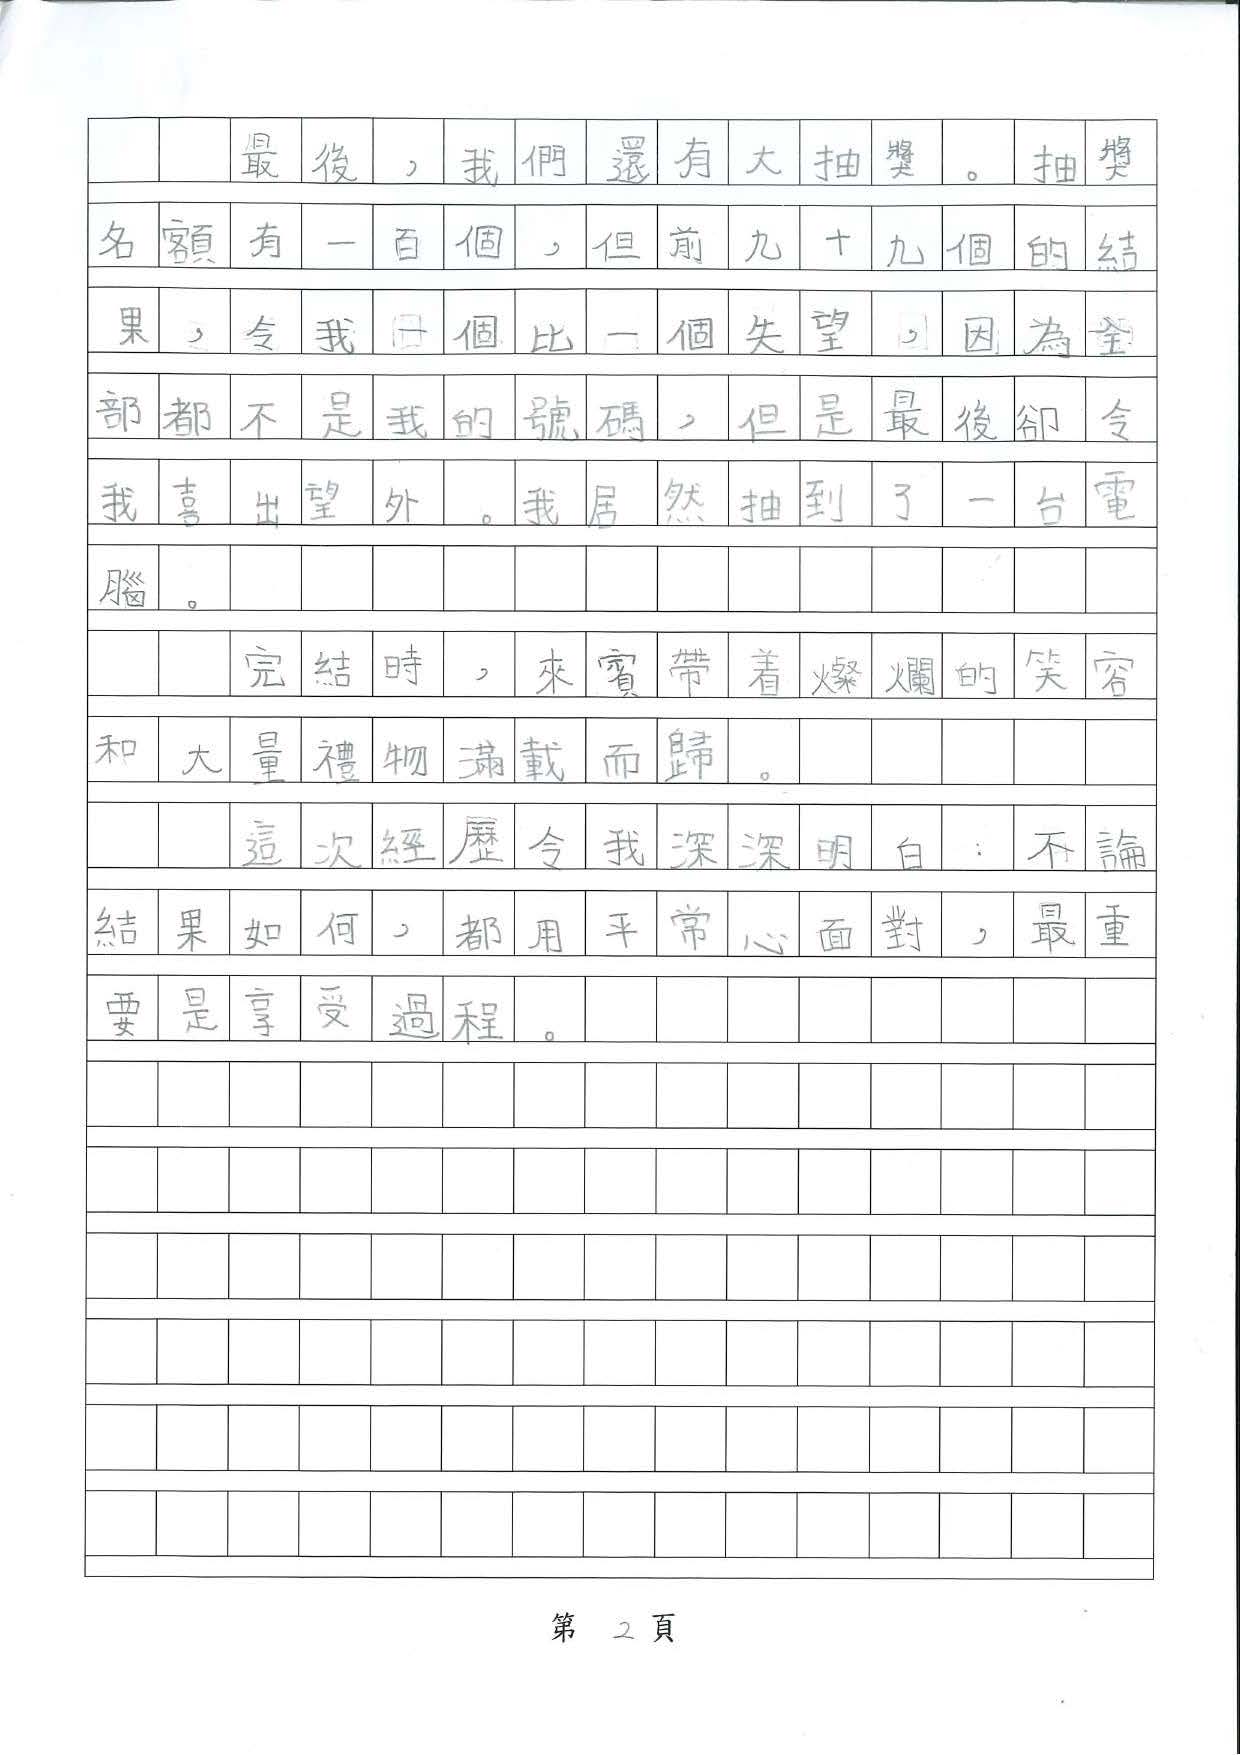 最後，我們還有大抽獎。抽獎
名額有一百個，但前九十九個的結
果，令我一個比一個失望，因為全
部都不是我的號碼，但是最後卻令
我喜出望外。我居然抽到了一台電
腦。
完結時，來賓帶着燦爛的笑容
和大量禮物滿載而歸。
這次經歷令我深深明白：不論
結果如何，都用平常心面對，最重
要是享受過程。
第 2 頁